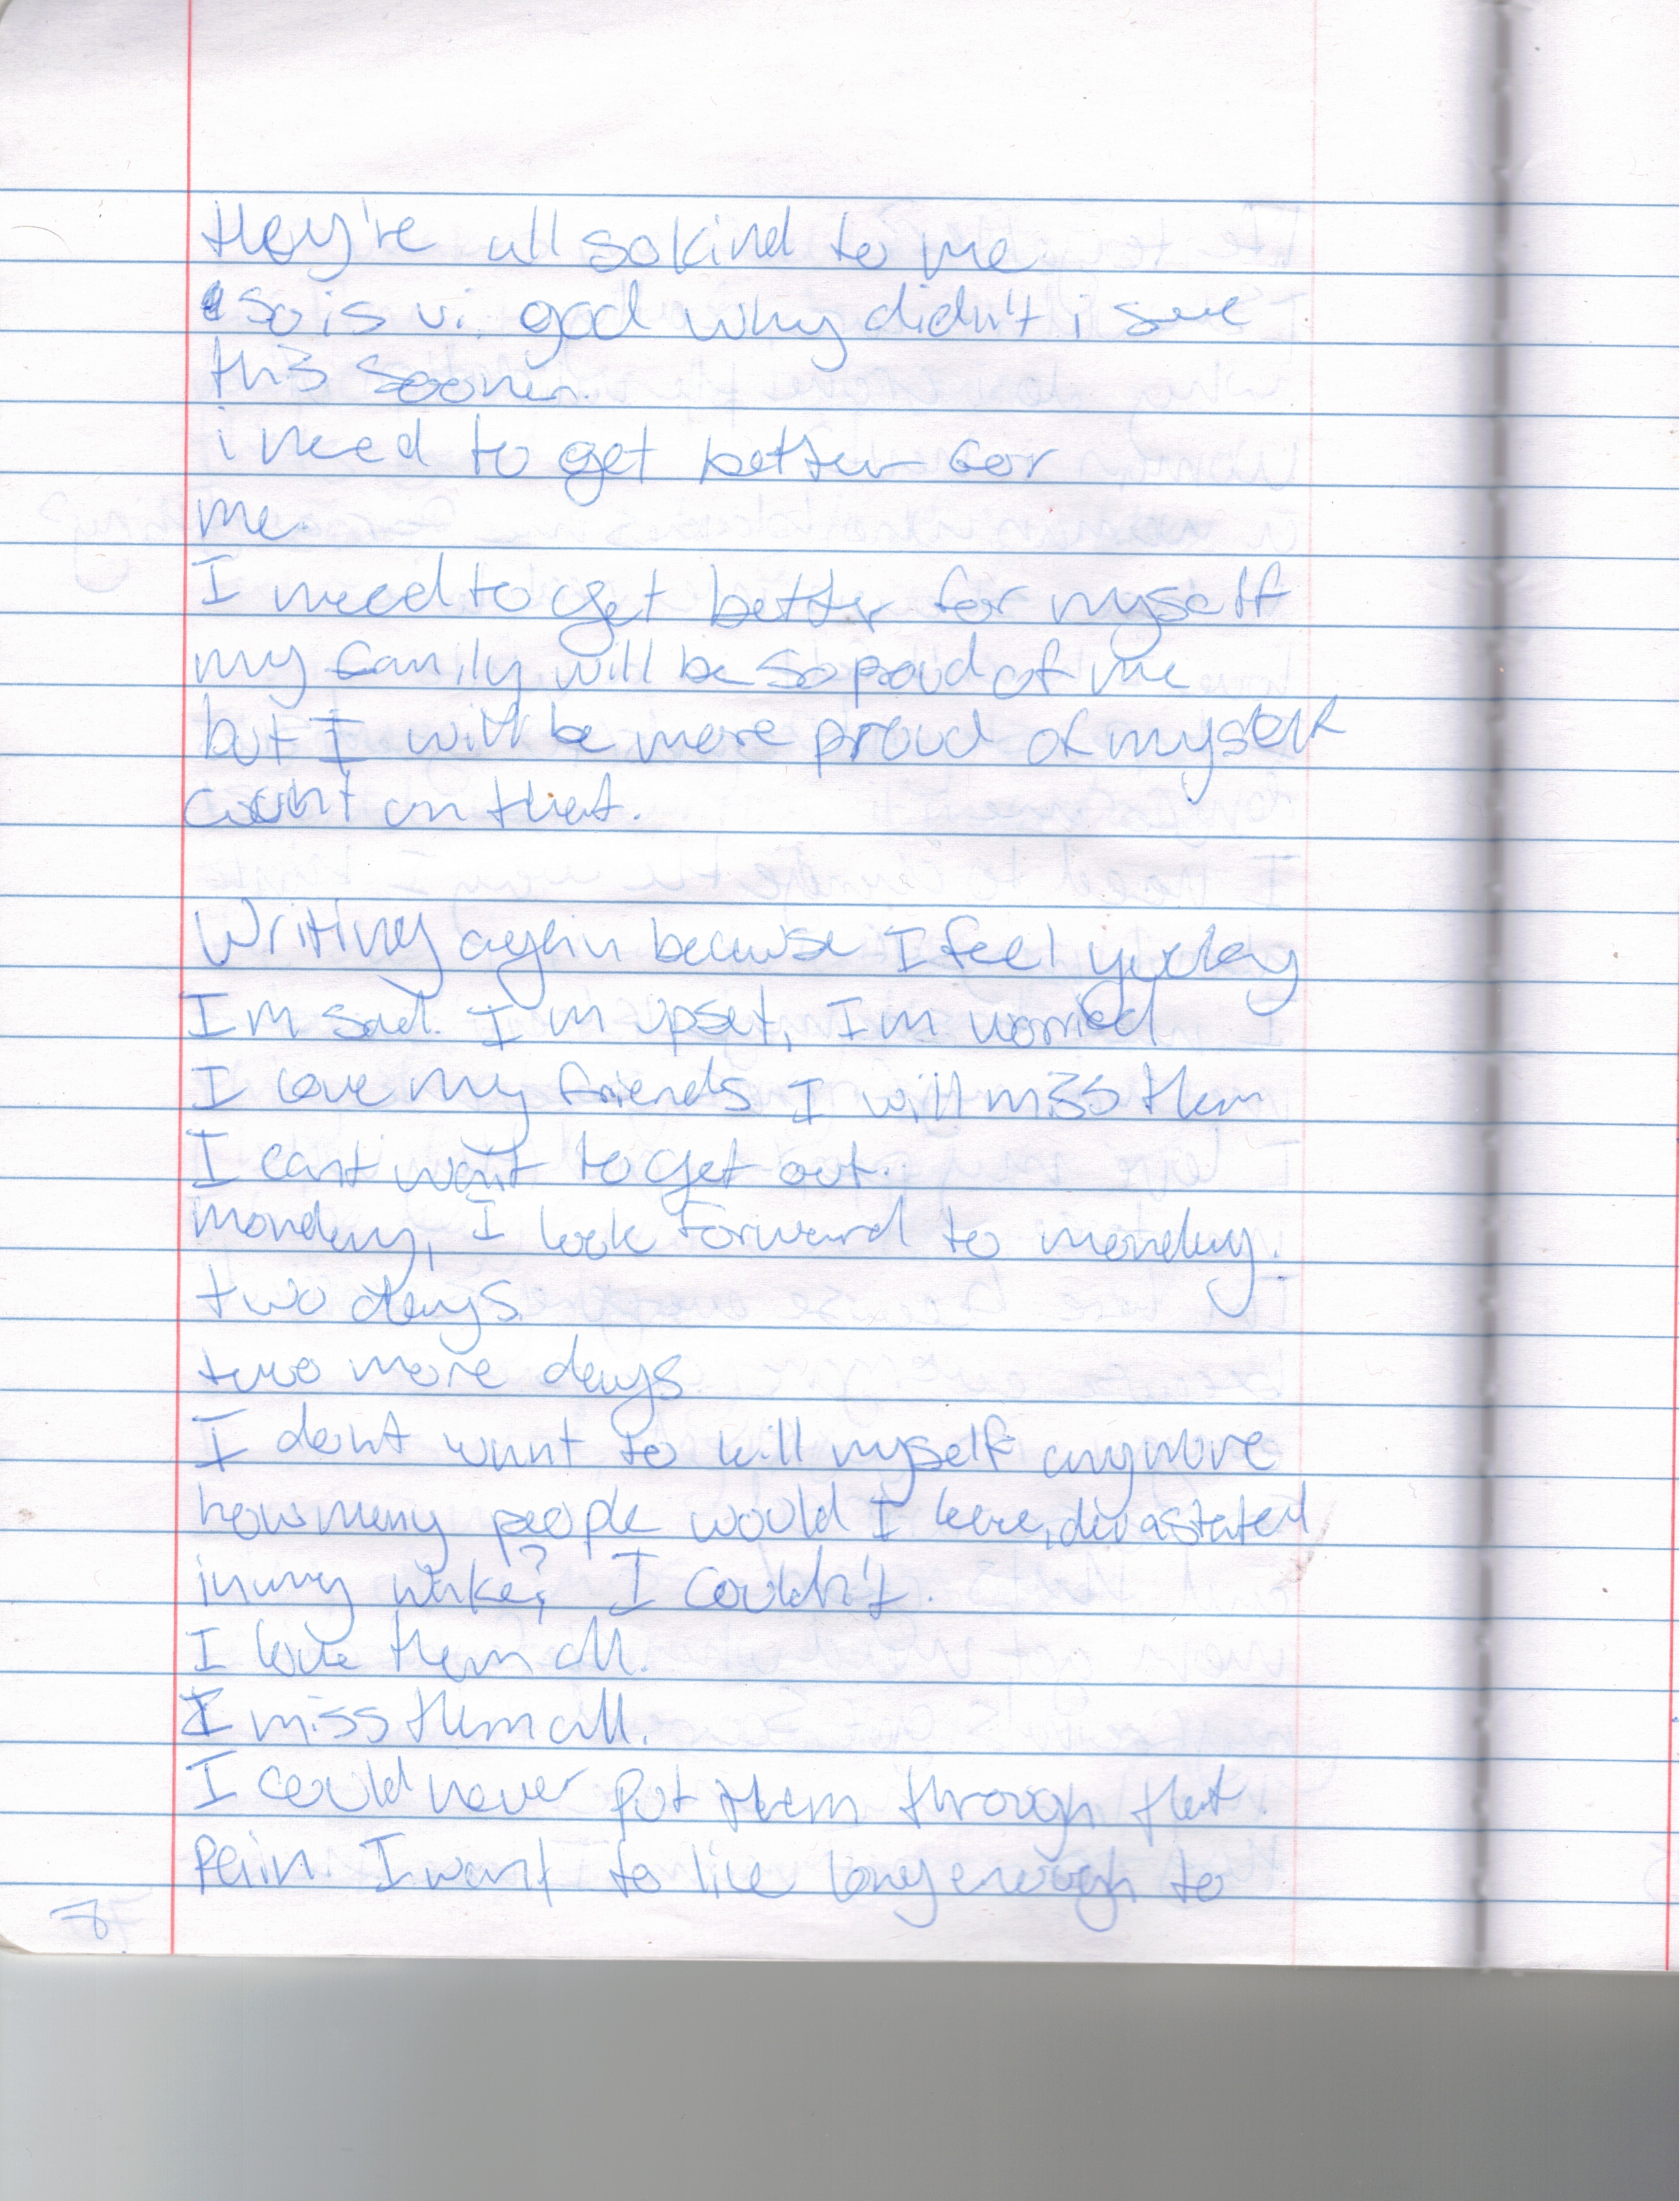 they're all so kind to me
so is vi. god why didn't i see
this sooner.
i need to get better for
me.
I need to get better for myself
my family will be so proud of me
but I will be more proud of myself
count on that.
Writing again because I feel yuckey
I'm sad. I'm upset, I'm worried
I love my friends I will miss them
I cant wait to get out.
monday, I look forward to monday.
two days
two more days
I dont want to kill myself anymore
how many people would I leave, divastated
in my wake? I couldn't.
I love them all.
I miss them all.
I could never put them through that
pain. I want to live long enough to
78